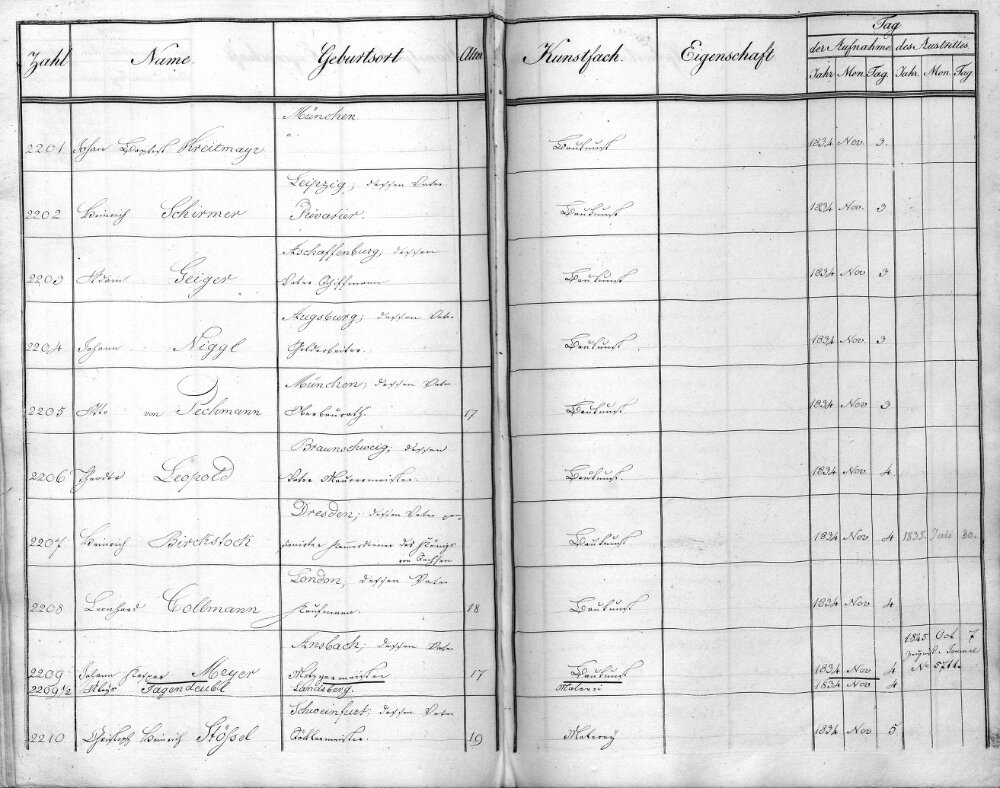 Tag
Zahl Name. Geburtsort Alter Kunstfach. Eigenschaft der Aufnahme des Austrittes
Jahr Mon. Tag. Jahr. Mon. Tag.
München
2201 Johan Baptist Kreitmayr Baukunst 1834 Nov. 3.
Leipzig; dessen Vater
2202 Heinrich Schirmer Privatier. Baukunst 1834 Nov. 3
Aschaffenburg; dessen
2203 Adam Geiger Vater Schiffmann Baukunst 1834 Nov 3
Augsburg; dessen Vater
2204 Johann Niggl Goldarbeiter. Baukunst. 1834 Nov. 3
München; dessen Vater
2205 Otto von Pechmann Oberbaurath. 17 Baukunst. 1834 Nov 3
Braunschweig; dessen
2206 Theodor Leopold Vater Maurermeister Baukunst 1834 Nov. 4.
Dresden; dessen Vater pen-
2207 Heinrich Birckstock sionirter Kammerdiener des Königs Baukunst 1834 Nov 4 1835. Juli 30.
von Sachsen
London; dessen Vater
2208 Leonhard Collmann Kaufmann. 18 Baukunst 1834 Nov 4
Ansbach; dessen Vater 1835 Oct 7
2209 Johann Kaspar Meyer Metzgermeister 17 Baukunst 1834 Nov 4 No 5711
2209 1/2 Alois Tagendeubt Landsberg. Malerei 1834 Nov 4
Schweinfurt; dessen Vater
2210 Christoph Heinrich Stössel Sattlermeister. 19 Malerey 1834 Nov 5